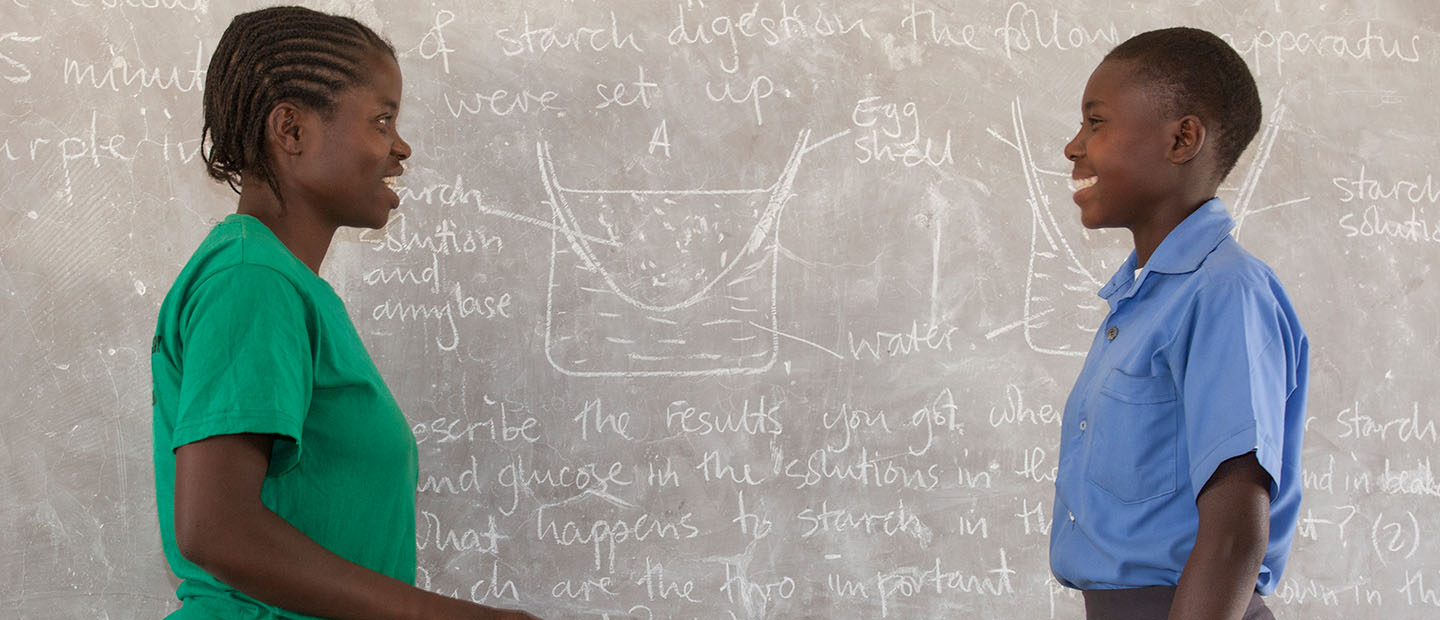 & starch digestion the follow apparatus
5 minut were set up
A
Egg
shell
starch
solution
and
amylase
starch
solutio
water
escribe the results you got whe r starch
and glucose in the solutions in the nd in beak
What happens to starch in th t? (2)
are the two important
own in th